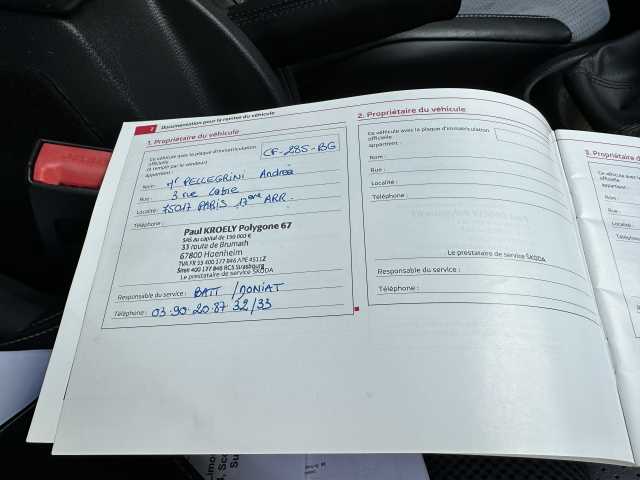 2 Documentation pour la remise du véhicule
1. Propriétaire du véhicule
Ce véhicule avec la plaque d'immatriculation
officielle
(à remplir par le vendeur)
appartient :
CF-285-BG
Nom : Mr PELLEGRINI Andrea
Rue : 3 rue
Localité : 75017 PARIS 17ème ARR.
Téléphone :
Paul KROELY Polygone 67
SAS au capital de 150 000 €
33 route de Brumath
67800 Hoenheim
TVA FR 55 400 177 846 APE 4511Z
Siren 400 177 846 RCS Strasbourg
Le prestataire de service ŠKODA
Responsable du service : BATT / DONIAT
Téléphone : 03.90.20.87.32/33
2. Propriétaire du véhicule
Ce véhicule avec la plaque d'immatriculation
officielle
appartient :
Nom :
Rue :
Localité :
Téléphone :
Le prestataire de service ŠKODA
Responsable du service :
Téléphone :
3. Propriétaire d
Ce véhicule
officielle
appartient
Nom :
Rue :
Localité
Téléphone
Respons
Télép